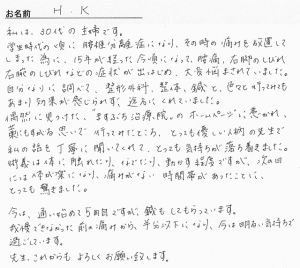 お名前 H.K
私は、30代の主婦です。
学生時代の頃に腰椎分離症になり、その時の痛みを放置して
しまった為に、15年が経った今頃になって、腰痛、右脚のしびれ
右腕のしびれなどの症状が出はじめ、大変悩まされていました。
自分なりに調べて、整形外科、整体、鍼と、色々と行ってみても
あまり効果が感じられず、途方にくれていました。
偶然に見つけた、"ますぶち治療院"のホームページに惹かれ、
藁にもすがる思いで行ってみたところ、とっても優しい人柄の先生で
私の話を丁寧に聞いてくれて、とっても気持ちが落ち着きました。
施術は体に触れたり、なでたり、動かす程度ですが、次の日
には体が楽になり、痛みがない時間帯があったことに、
とっても驚きました。
今は、通い始めて5回目ですが、鍼もしてもらっています。
我慢できなかった前の痛みから、半分以下になり、今は明るい気持ちで
過ごしています。
先生、これからもよろしくお願い致します。